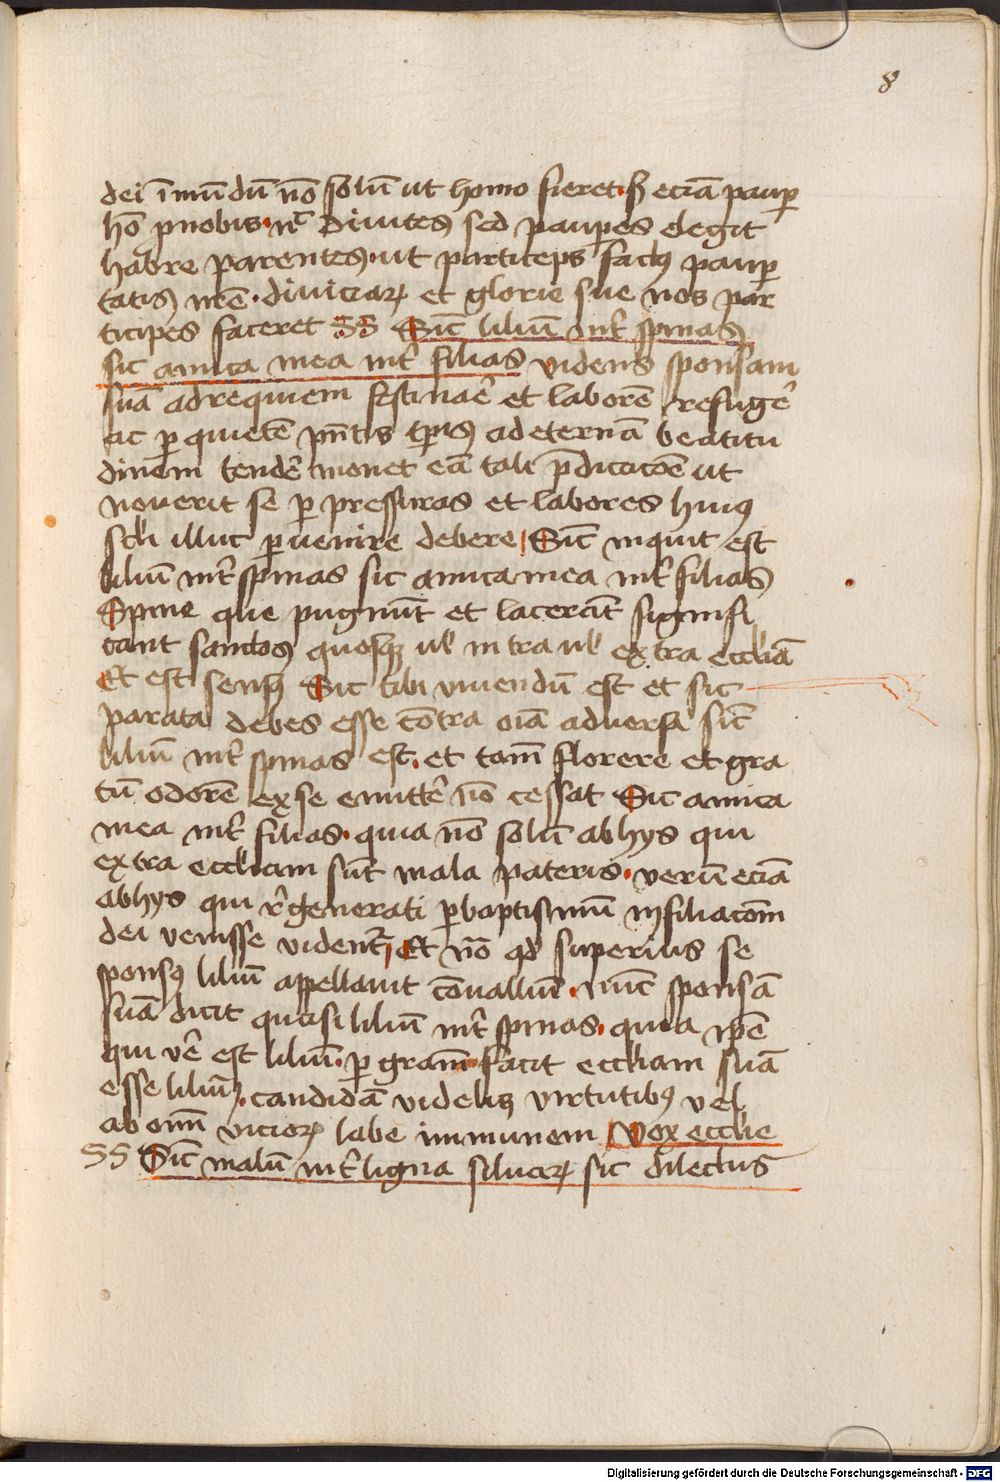 8
dei ī mūdū nō solū ut homo fieret · sꝫ eciā paup
hō p nobis · nc̄ divites sed paupes elegit
habre parentes · ut particeps factꝰ paup
tatis nr̄e · diviciaꝝ et glorie sue nos par
ticipes faceret SS Sic̄ liliū int̄ spinas
sic amica mea int̄ filias videns sponsam
suā ad requiem festinar̄e et laborē refuger̄
ac p quietē pn̄tis tꝑis ad eternā beatitu
dinem tender̄ monet eā tali p̄dicacōe ut
noverit se p pressuras et labores huiꝰ
scl̄i illuc pvenire debere Sic̄ inquit est
liliū int̄ spinas sic amica mea int̄ filias
Spine que pugnūt et lacerāt signifi
cant sanctos quosqꝫ ul̄ intra ul̄ extra eccl̄iā
Et est sensꝰ Sic tibi vivendū est et sic
parata debes esse cōtra oīa adversa sic̄
liliū int̄ spinas est · et tam̄ florere et gra
tū odorē ex se emitter̄ nō cessat Sic amica
mea int̄ filias · quia nō solū ab hys qui
extra eccl̄iam sūt mala pateris · verū eciā
ab hys qui r̄generati p baptismū in filiacōm
dei venisse vident̄ Et nō qd superius se
sponsꝰ liliū appellavit cōvalliū · nūc sponsā
suā dicit quasi liliū int̄ spinas · quia ip̄e
qui ver̄ est liliū · p gram̄ facit eccl̄iam suā
esse liliū · candidā videlicꝫ virtutibꝰ vel
ab om̄i vicioꝝ labe immunem Vox eccl̄ie
SS Sic̄ malū int̄ ligna silvaꝝ sic dilectus
Digitalisierung gefördert durch die Deutsche Forschungsgemeinschaft - DFG